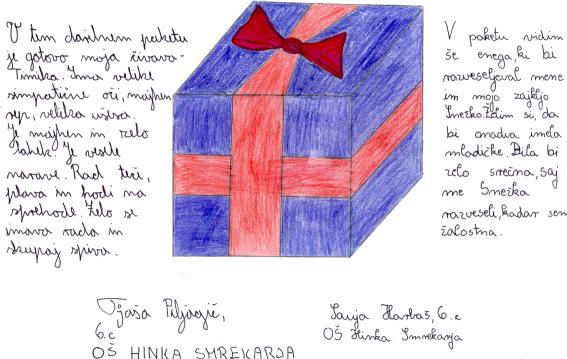 V tem darilnem paketu
je gotovo moja čivava-
Timika. Ima velike
simpatične oči, majhen
velika ušesa.
Je majhen in zelo
lahek. Je vesele
narave. Rad teči,
plava in hodi na
sprehode. Zelo se
imava rada in
skupaj spiva.
Tjaša Piljagić,
6.c
OŠ HINKA SMREKARJA
V paketu vidim
še enega, ki bi
razveseljeval mene
in mojo zajkljo
Snežko. Želim si, da
bi onadva imela
mladičke. Bila bi
zelo srečna, saj
me Snežka
razveseli, kadar sem
žalostna.
Sanja Harbaš, 6.c
OŠ Hinka Smrekarja